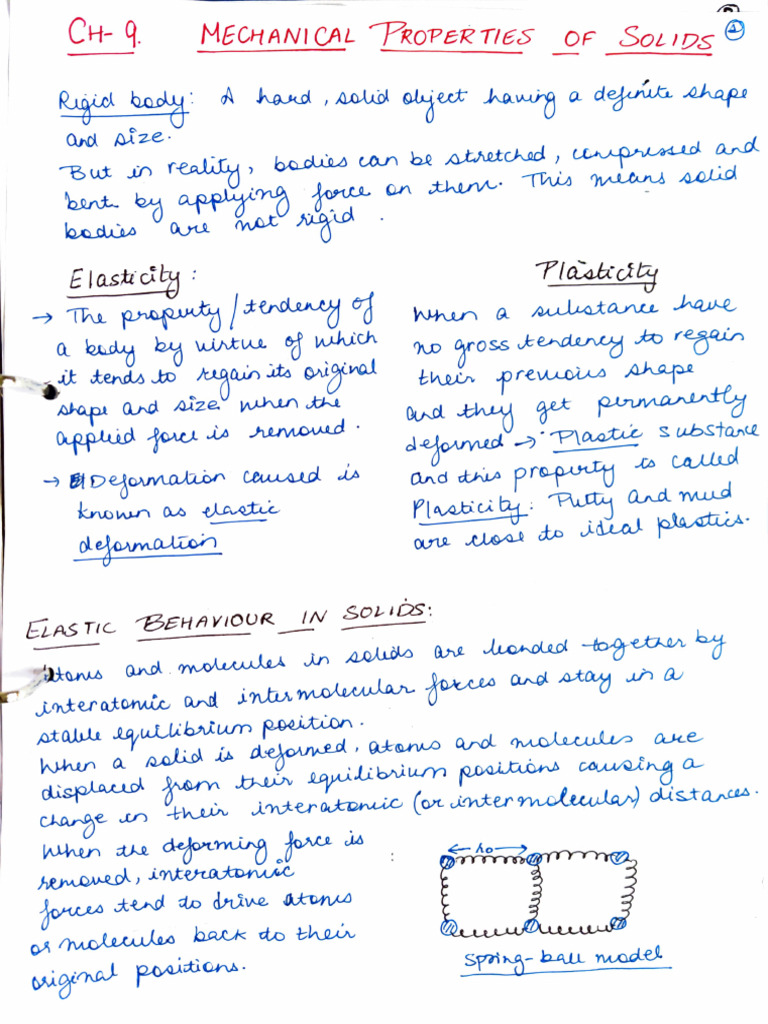 CH-9. MECHANICAL PROPERTIES OF SOLIDS
Rigid body: A hard, solid object having a definite shape
and size.
But in reality, bodies can be stretched, compressed and
bent by applying force on them. This means solid
bodies are not rigid.
Elasticity:
→ The property/tendency of
a body by virtue of which
it tends to regain its original
shape and size when the
applied force is removed.
→ Deformation caused is
known as elastic
deformation
Plasticity
When a substance have
no gross tendency to regain
their previous shape
and they get permanently
deformed → Plastic substance
and this property is called
Plasticity: Putty and mud
are close to ideal plastics.
ELASTIC BEHAVIOUR IN SOLIDS:
Atoms and molecules in solids are bonded together by
interatomic and intermolecular forces and stay in a
stable equilibrium position.
When a solid is deformed, atoms and molecules are
displaced from their equilibrium positions causing a
change in their interatomic (or intermolecular) distances.
When the deforming force is
removed, interatomic
forces tend to drive atoms
or molecules back to their
original positions.
← r0 →
Spring-ball model